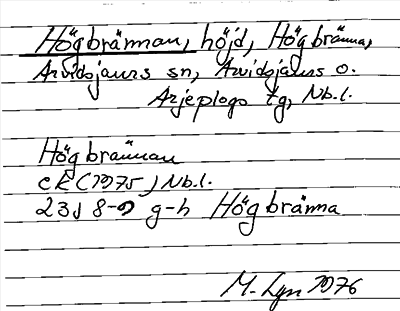 Högbrännan, höjd, Högbränna,
Arvidsjaurs sn, Arvidsjaurs o.
Arjeplogs tg, Nb.l.
Högbrännan
EK (1975) Nb.l.
23J 8-9 g-h Högbränna
M. Lgn 1976